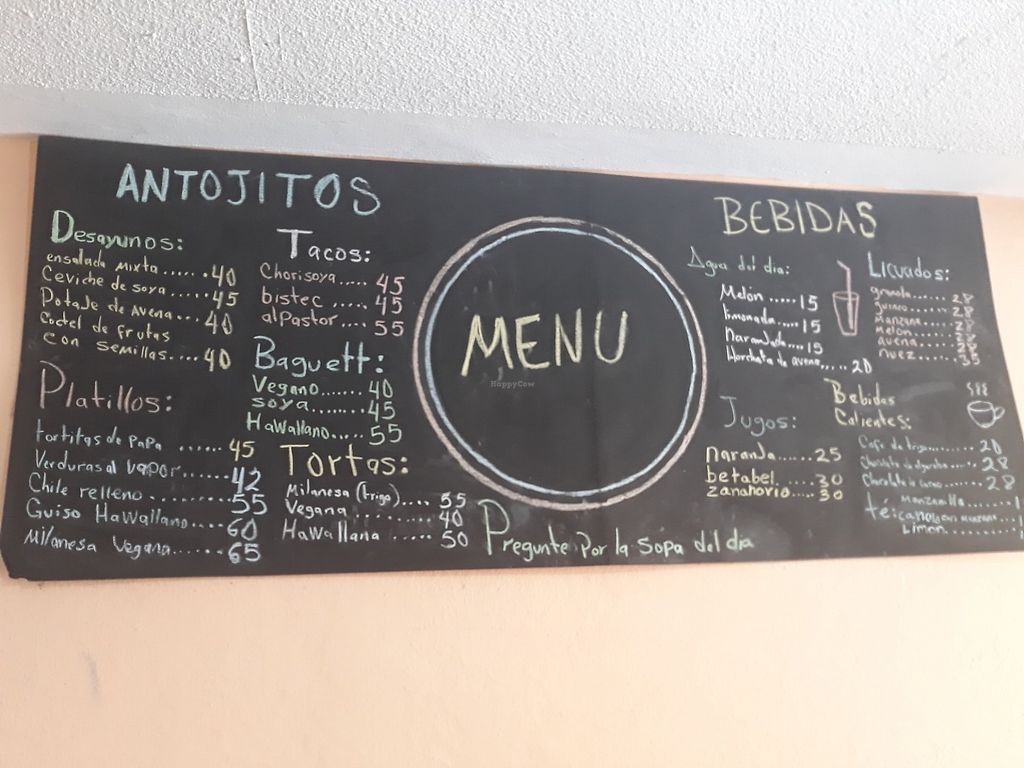 ANTOJITOS
Desayunos:
ensalada mixta ...... 40
Ceviche de soya ..... 45
Potaje de Avena ... 40
Coctel de frutas
con semillas .... 40
Platillos:
tortitas de papa ...... 45
Verduras al vapor ..... 42
Chile relleno ......... 55
Guiso Hawallano .... 60
Milanesa Vegana ...... 65
Tacos:
Chorisoya ..... 45
bistec .... 45
al Pastor .... 55
Baguett:
Vegano ...... 40
soya ....... 45
Hawallano ..... 55
Tortas:
Milanesa (trigo) .... 55
Vegana ......... 40
Hawallana ..... 50
MENU
HappyCow
Pregunte Por la Sopa del dia
BEBIDAS
Agua del dia:
Melón ..... 15
limonada .... 15
Naranjada .... 15
Horchata de avena ... 20
Jugos:
naranja ...... 25
betabel ...... 30
zanahorio ..... 30
Licuados:
granola ...... 28
melon
avena
nuez
Bebidas
Calientes:
Cafe de trigo ..... 20
28
28
té:
Manzanilla
Limon